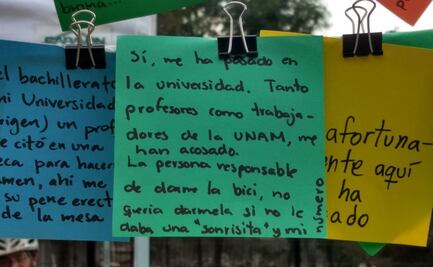 banna...
el bachillerato
ni Universidad
igen) un prof
e citó en una
eca para hacer
men, ahí me
su pene erect
de la mesa
Sí, me ha pasado en
la universidad. Tanto
profesores como trabaja-
dores de la UNAM, me
han acosado.
La persona responsable
de darme la bici, no
quería darmela si no le
daba una "sonrisita" y mi
número
afortuna-
nte aquí
ha
ado